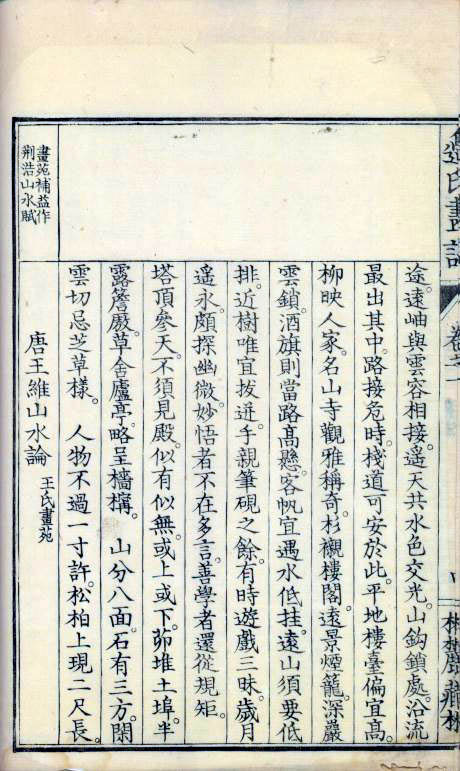 氏畫譜 卷之
途。遠岫與雲容相接。遥天共水色交光。山鈎鎖處。沿流
最出其中。路接危時。棧道可安於此。平地樓臺偏宜高
柳映人家。名山寺觀雅稱奇杉襯樓閣。遠景煙籠。深巖
雲鎖。酒旗則當路高懸。客帆宜遇水低挂。遠山須要低
排。近樹唯宜拔迸。手親筆硯之餘。有時遊戲三昧。歲月
遥永。頗探幽微。妙悟者不在多言。善學者還從規矩。
塔頂參天。不須見殿。似有似無。或上或下。茆堆土埠。半
露簷廒。草舍廬亭。略呈檣。 山分八面。石有三方。閑
雲切忌芝草樣。 人物不過一寸許。松柏上現二尺長。
畫苑補益作
荆浩山水賦
唐王維山水論 王氏畫苑